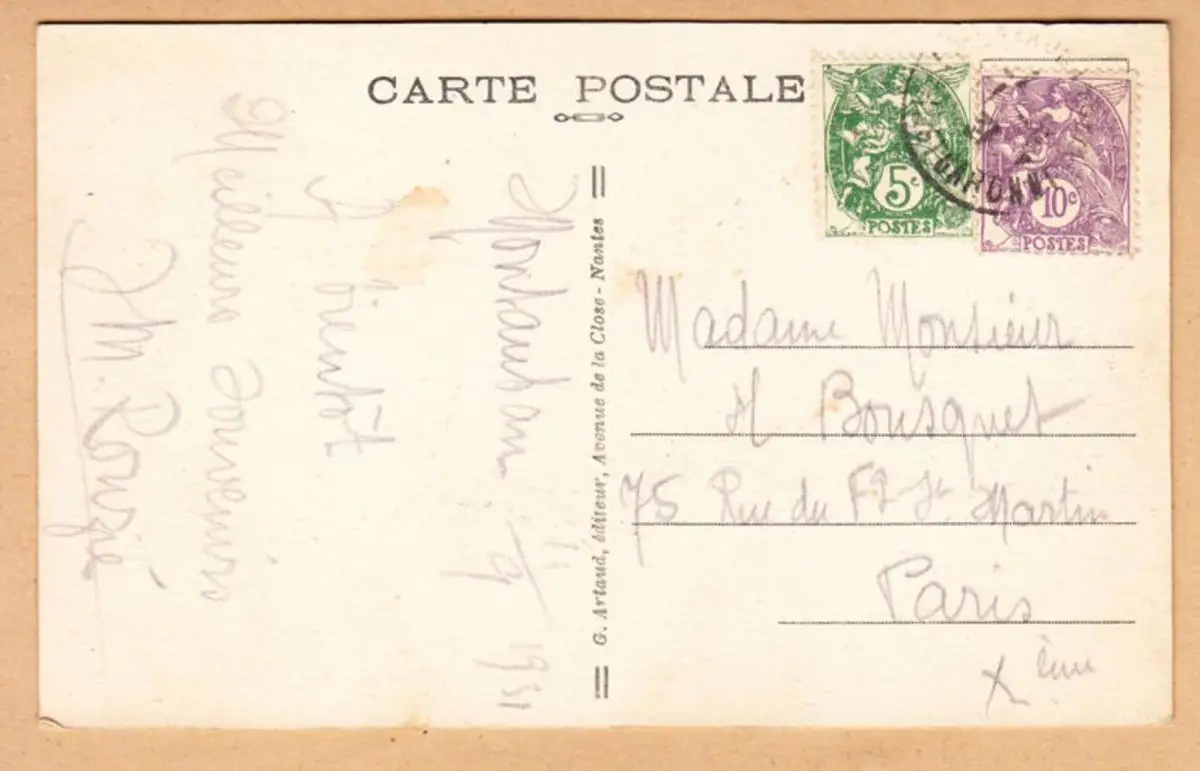 CARTE POSTALE
5c
POSTES
10c
POSTES
G. Artaud, éditeur, Avenue de la Close - Nantes
Montauban 11/9 1931
à bientôt
Meilleurs souvenirs
M. Rouzié
Madame Monsieur
H Bousquet
75 Rue du Fg St Martin
Paris
X ème